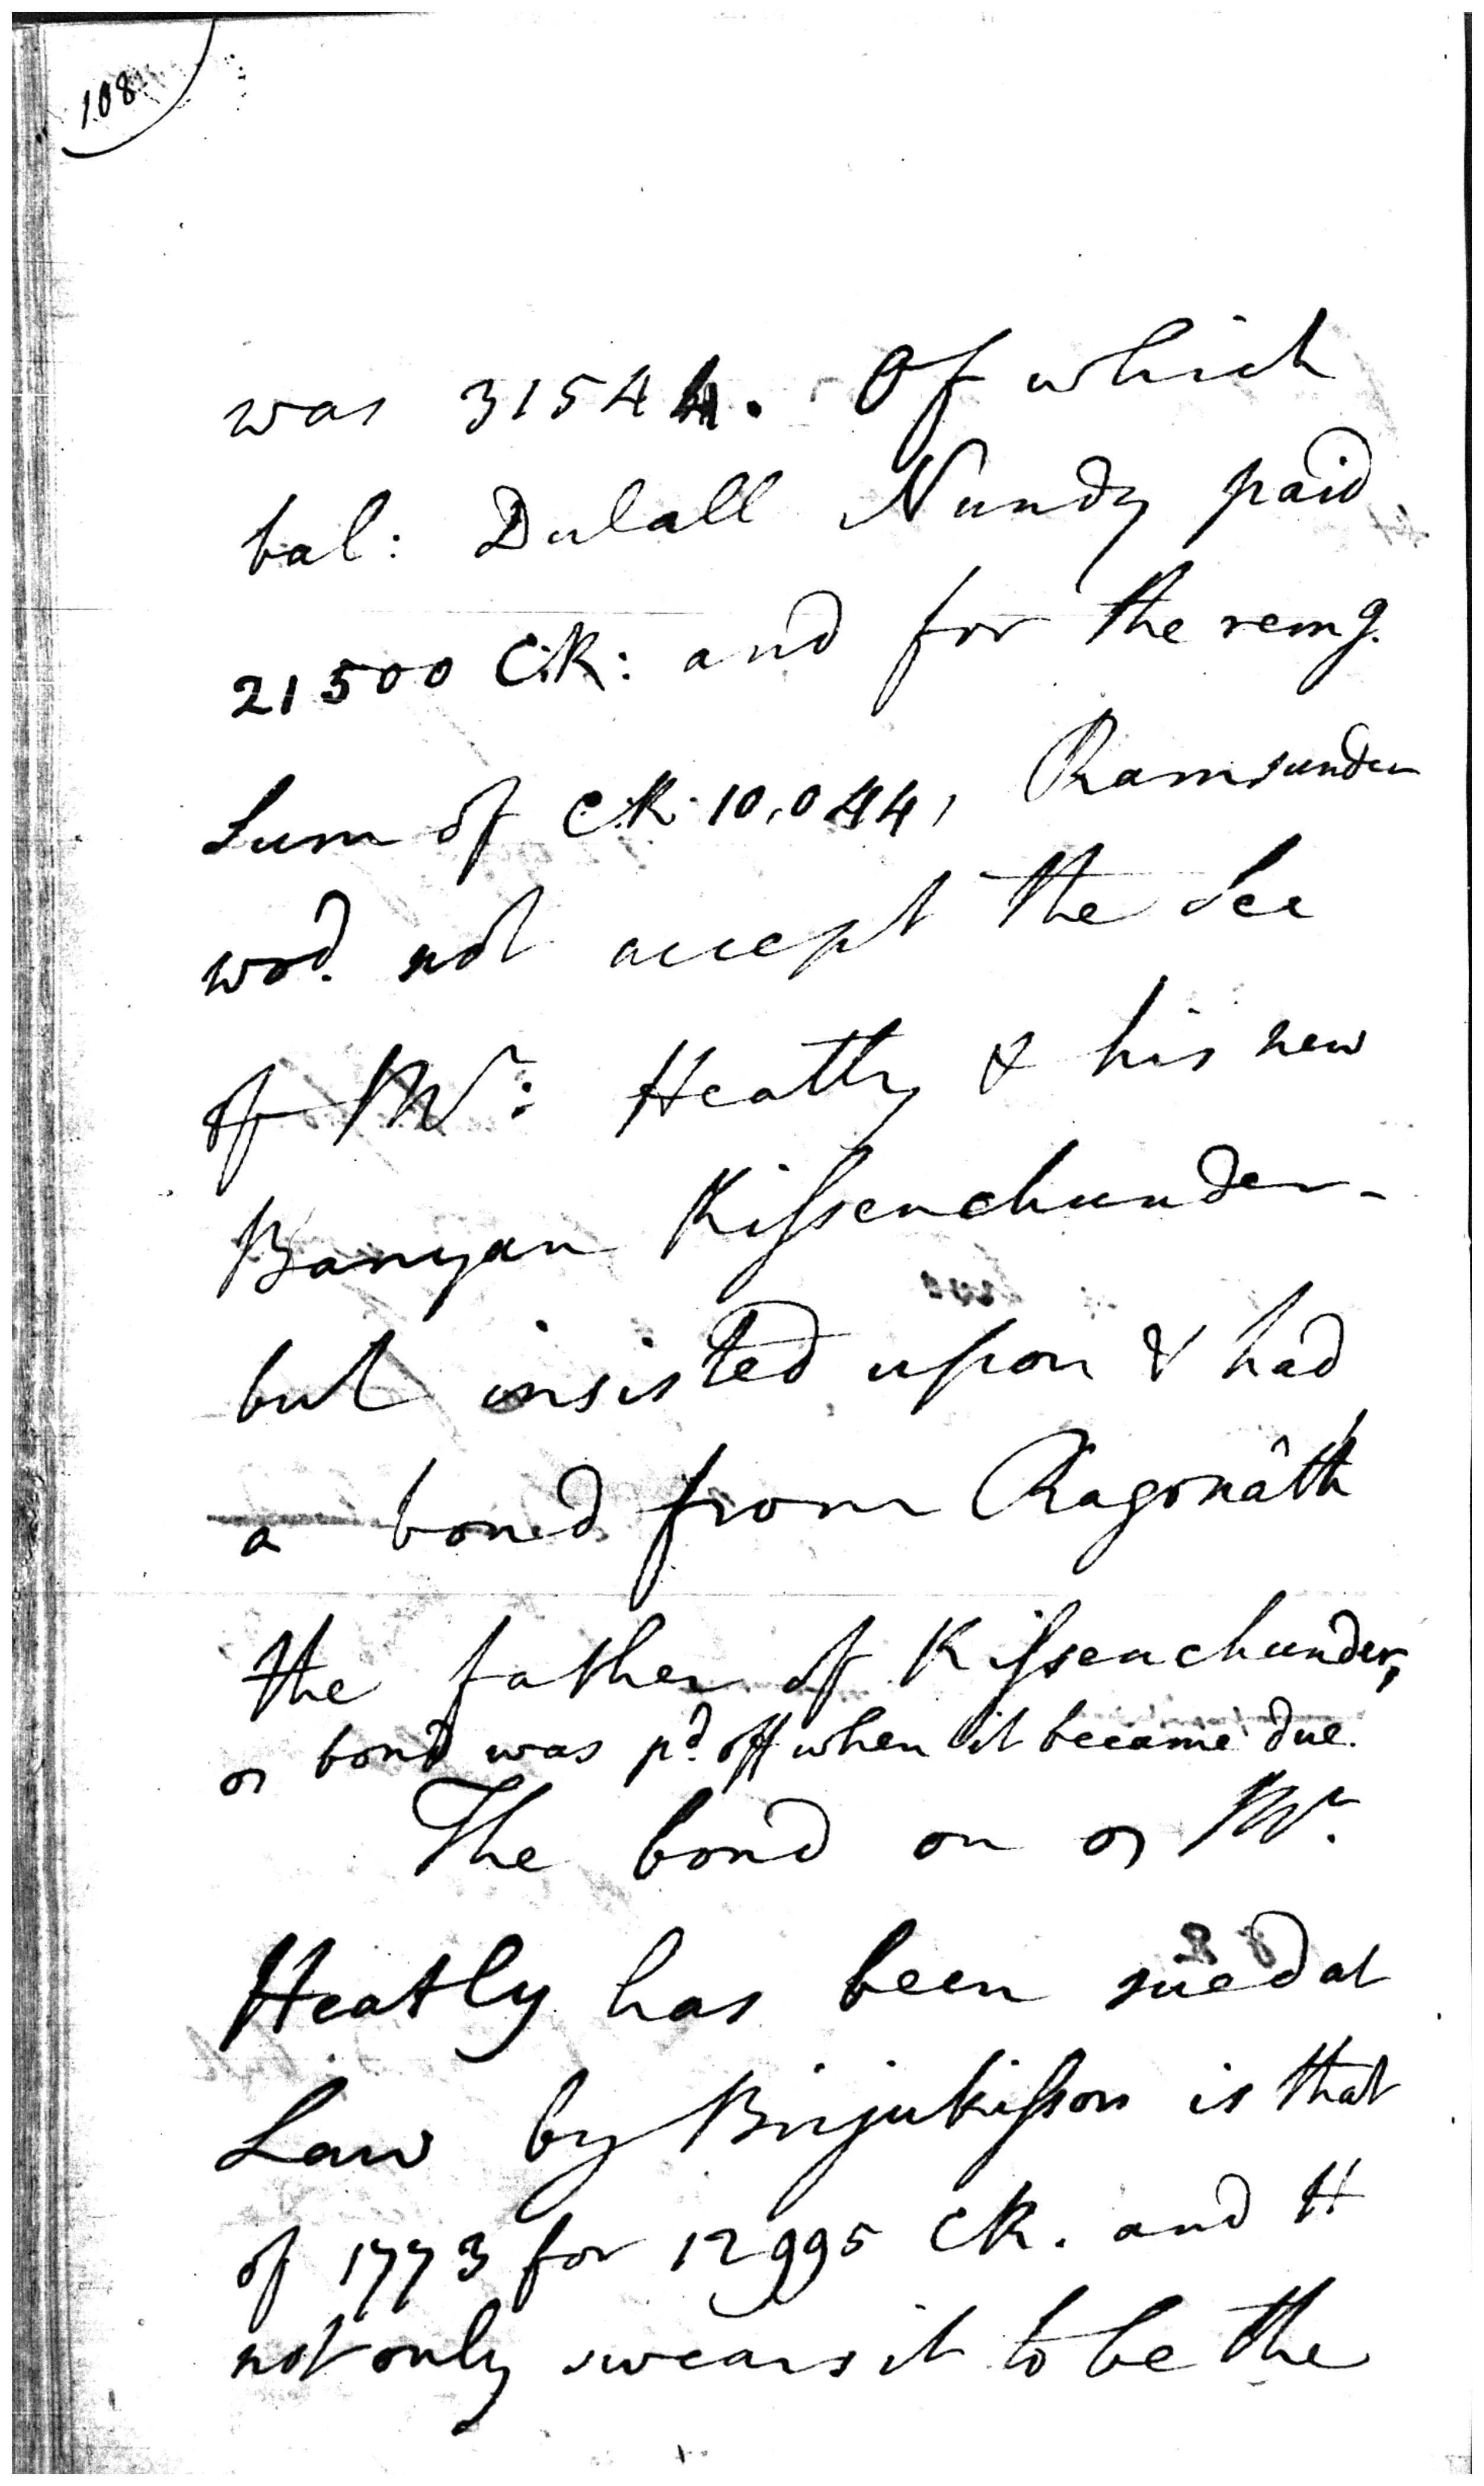 108
was 31544. Of which
bal: Dulall Nundy paid
21500 C.R: and for the remg.
Sum of C.R. 10,044, Ramsunder
wod. not accept the Sec
of Mr: Heatly & his new
Banyan Kissenchunder-
but insisted upon & had
a bond from Ragonâth
the father of Kissenchunder,
bond was pd. off when it became due.
The bond on Mr.
Heatly has been sued at
Law by Birjukisson is that
of 1773 for 12995 CR. and H
not only swears it to be the